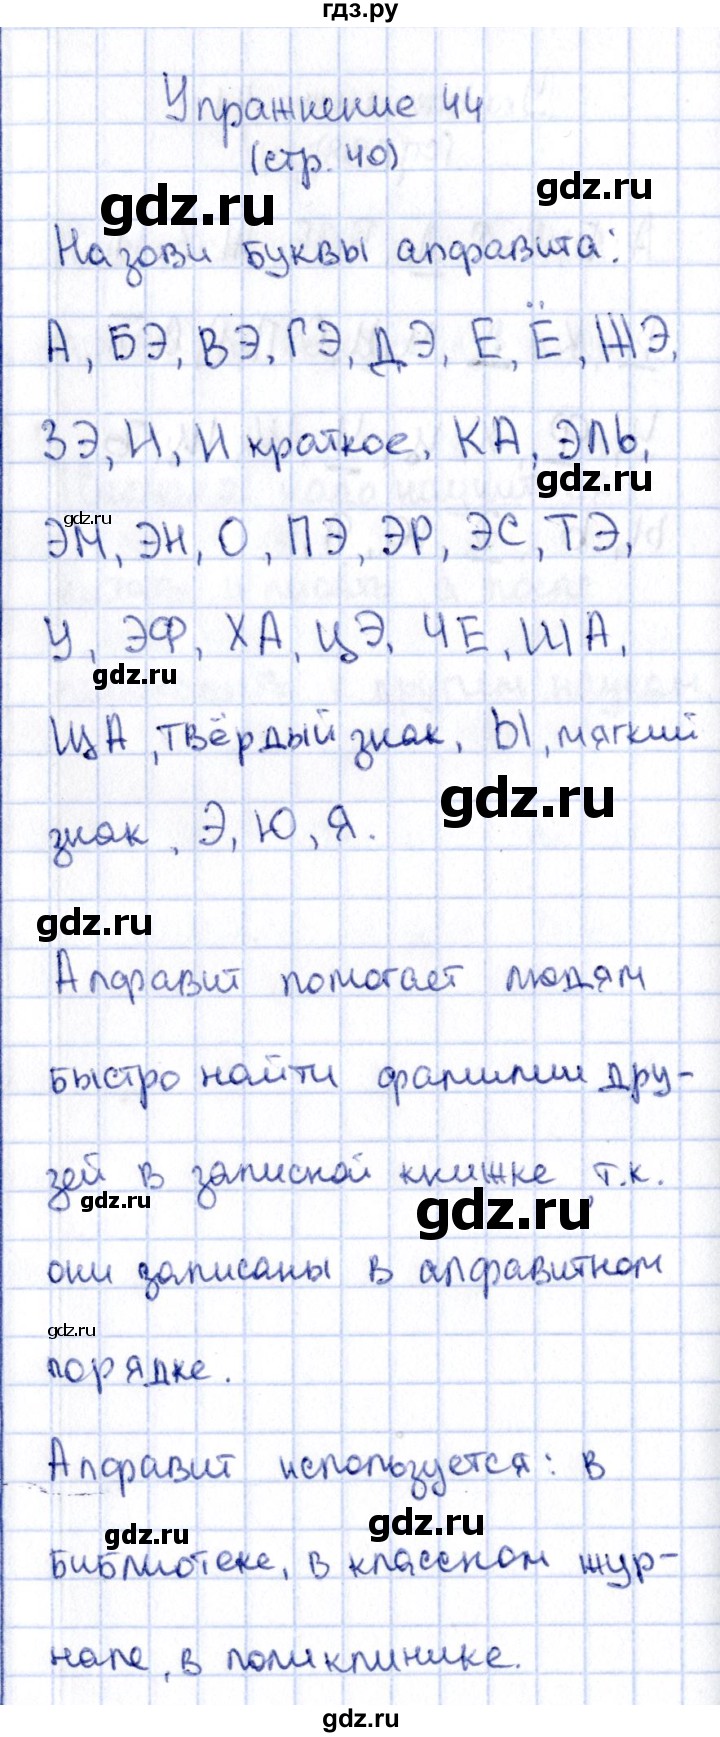 гдз.ру
Упражнение 44
(стр. 40)
gdz.ru
gdz.ru
Назови буквы алфавита:
А, БЭ, ВЭ, ГЭ, ДЭ, Е, Ё, ЖЭ,
ЗЭ, И, И краткое, КА, ЭЛЬ,
gdz.ru
gdz.ru
ЭМ, ЭН, О, ПЭ, ЭР, ЭС, ТЭ,
У, ЭФ, ХА, ЦЭ, ЧЕ, ША,
gdz.ru
ЩА, твёрдый знак, Ы, мягкий
gdz.ru
знак, Э, Ю, Я.
gdz.ru
Алфавит помогает людям
быстро найти фамилии дру-
зей в записной книжке, т.к.
gdz.ru
gdz.ru
они записаны в алфавитном
gdz.ru
порядке.
Алфавит используется: в
gdz.ru
gdz.ru
библиотеке, в классном жур-
нале, в поликлинике.
gdz.ru